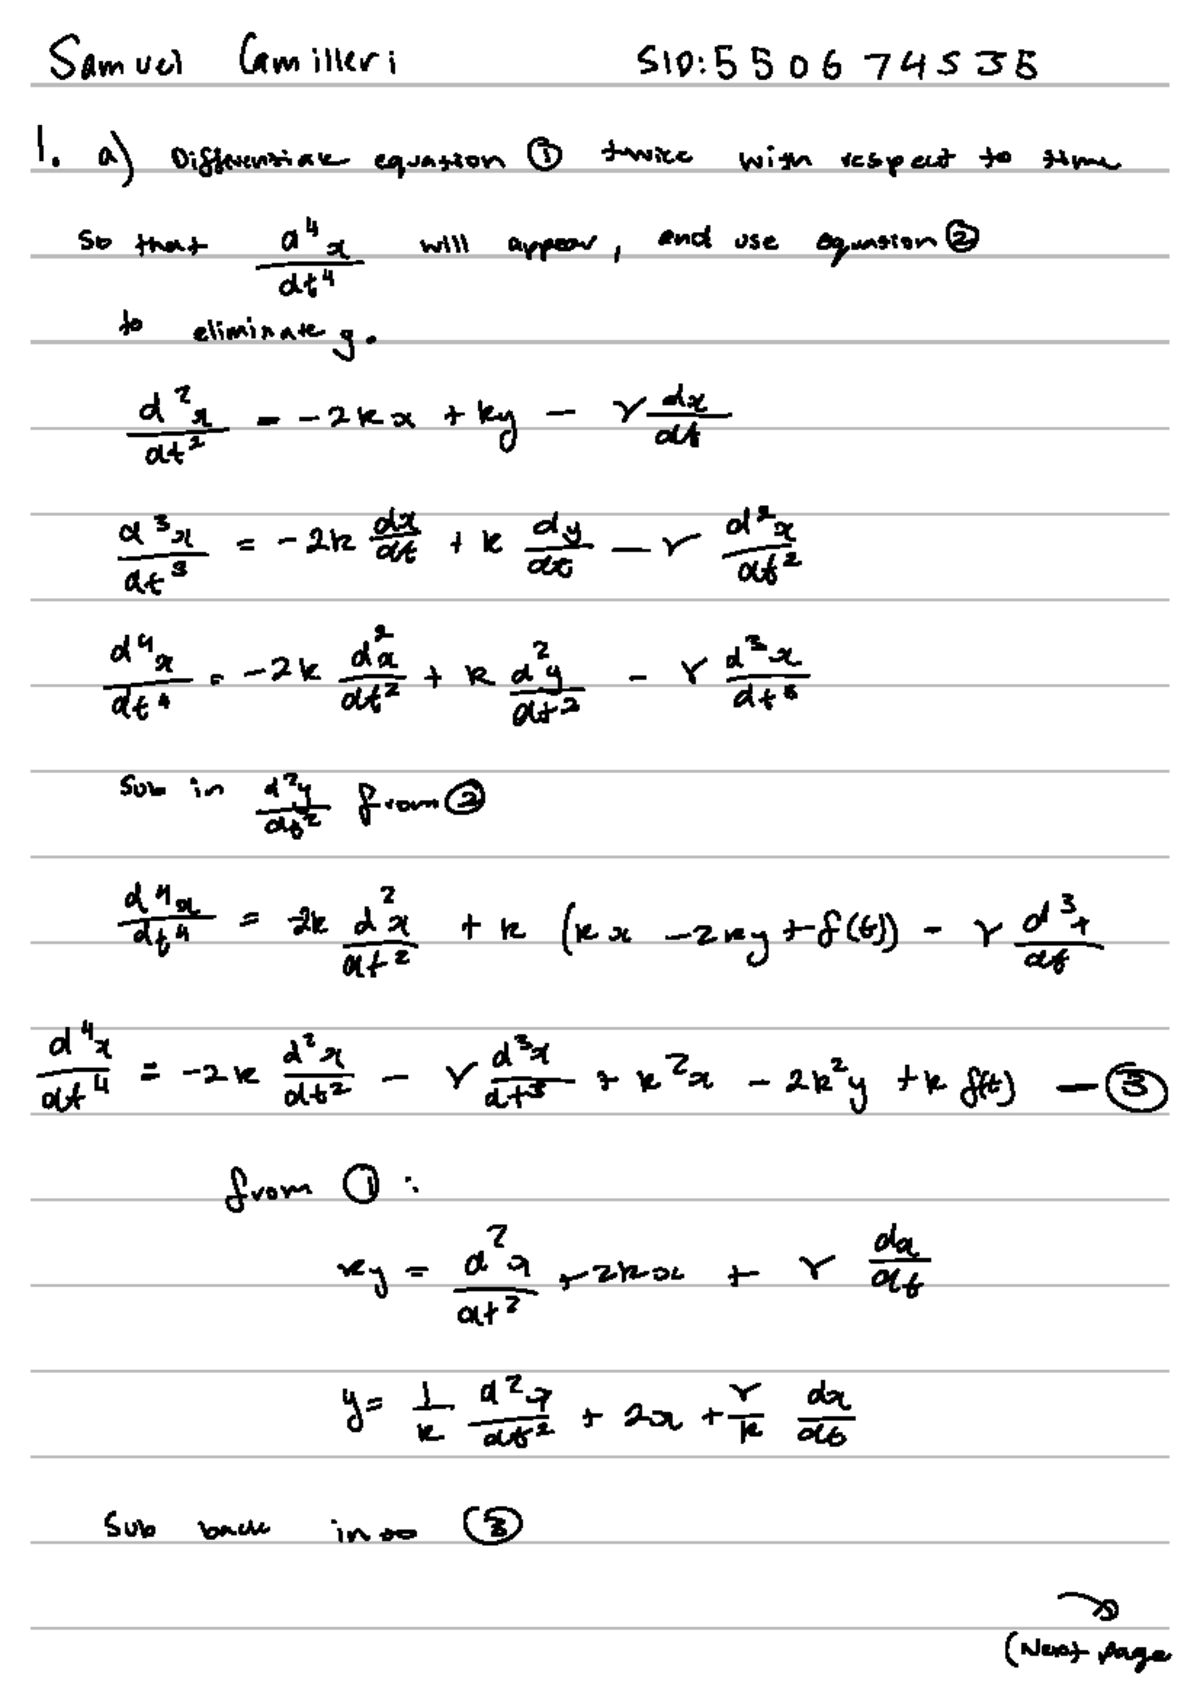 Samuel Camilleri SID: 550674535
1. a) Differentiate equation ① twice with respect to time
so that d⁴x/dt⁴ will appear, and use equation ②
to eliminate y.
d²x/dt² = -2kx + ky - r dx/dt
d³x/dt³ = -2k dx/dt + k dy/dt - r d²x/dt²
d⁴x/dt⁴ = -2k d²x/dt² + k d²y/dt² - r d³x/dt³
Sub in d²y/dt² from ②
d⁴x/dt⁴ = -2k d²x/dt² + k (kx - 2ky + f(t)) - r d³x/dt
d⁴x/dt⁴ = -2k d²x/dt² - r d³x/dt³ + k²x - 2k²y + k f(t) — ③
from ① :
ky = d²x/dt² + 2kx + r dx/dt
y = 1/k d²x/dt² + 2x + r/k dx/dt
Sub back into ③
(Next page